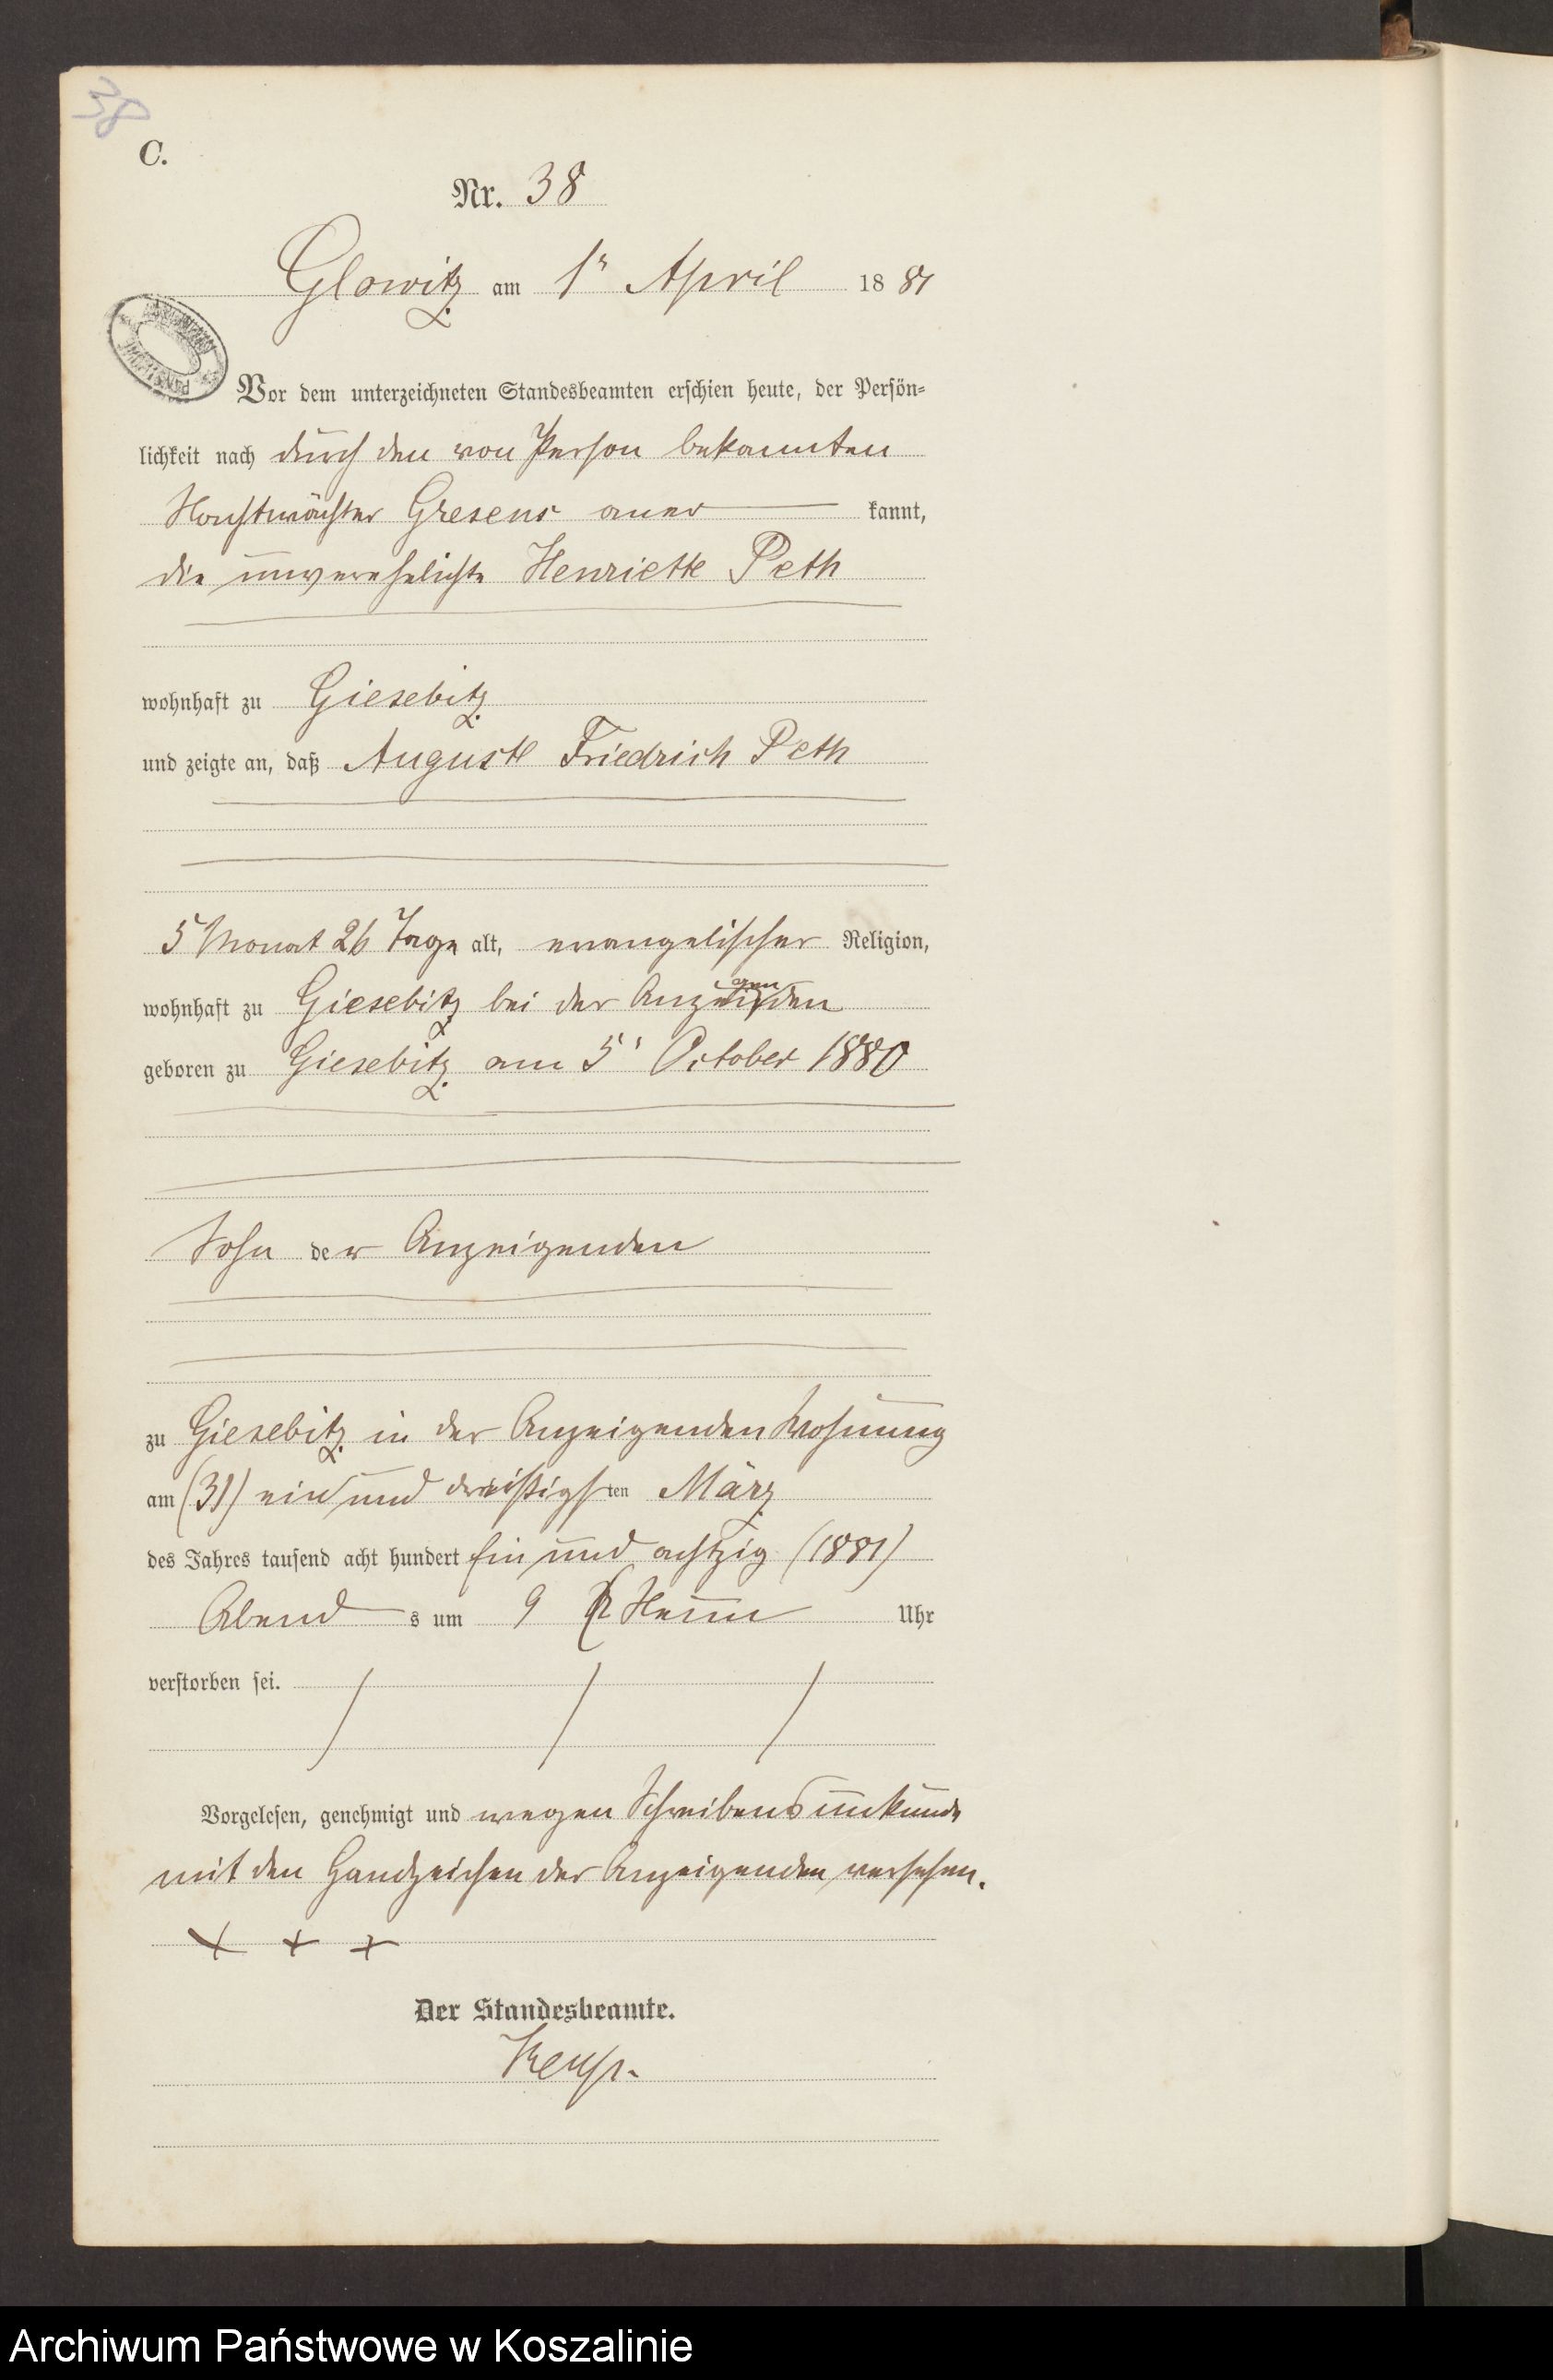 38
C.
Nr. 38
Glowitz am 1n April 1881
Vor dem unterzeichneten Standesbeamten erschien heute, der Persön-
lichkeit nach durch den von Person bekannten
Gresens aner kannt,
die unverehelichte Henriette Peth
wohnhaft zu Giesebitz
und zeigte an, daß August Friedrich Peth
5 Monat 26 Tage alt, evangelischer Religion,
wohnhaft zu Giesebitz bei der Anzeigenden
geboren zu Giesebitz am 5' October 1880
Sohn der Anzeigenden
zu Giesebitz in der Anzeigenden Wohnung
am (31) ein und dreißigsten März
des Jahres tausend acht hundert ein und achtzig (1881)
Abend s um 9 Neun Uhr
verstorben sei.
Vorgelesen, genehmigt und wegen Schreibensunkunde
mit den Handzeichen der Anzeigenden versehen.
+ + +
Der Standesbeamte.
Archiwum Państwowe w Koszalinie